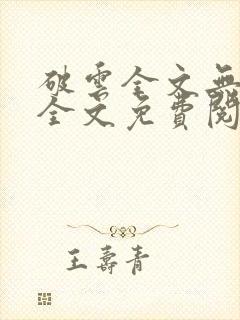 破雲全文無
全文免費閱
王壽青